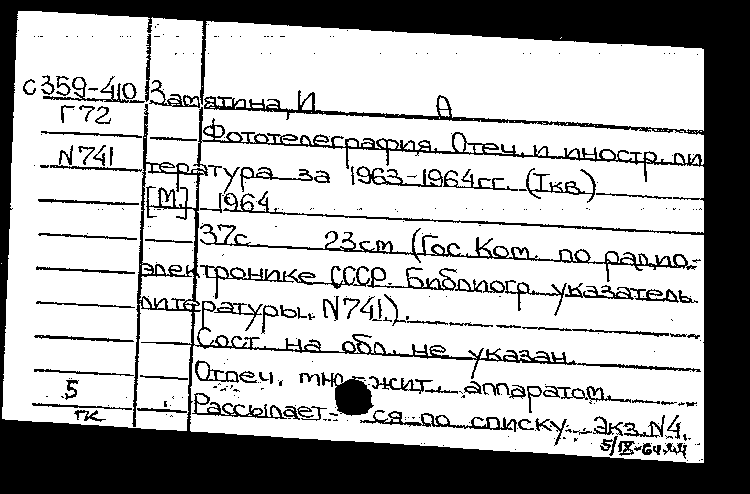 С359-410 Замятина, И А
Г72
Фототелеграфия. Отеч. и иностр. ли
N741
тература за 1963-1964гг. (Iкв)
[М] 1964.
37с 23cm (Гос. Ком. по радио-
электронике СССР. Библиогр. указатель
литературы. N741).
Сост. на обл. не указан.
Отпеч. аппаратом.
5
Рассылает-ся по списку. Экз. N4.
гк
5/IX-64